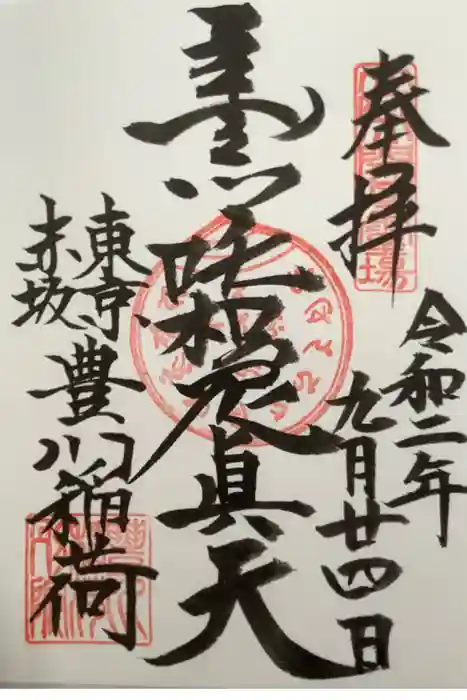 奉拝
令和二年
九月廿四日
吒枳尼眞天
東京
赤坂
豊川稲荷